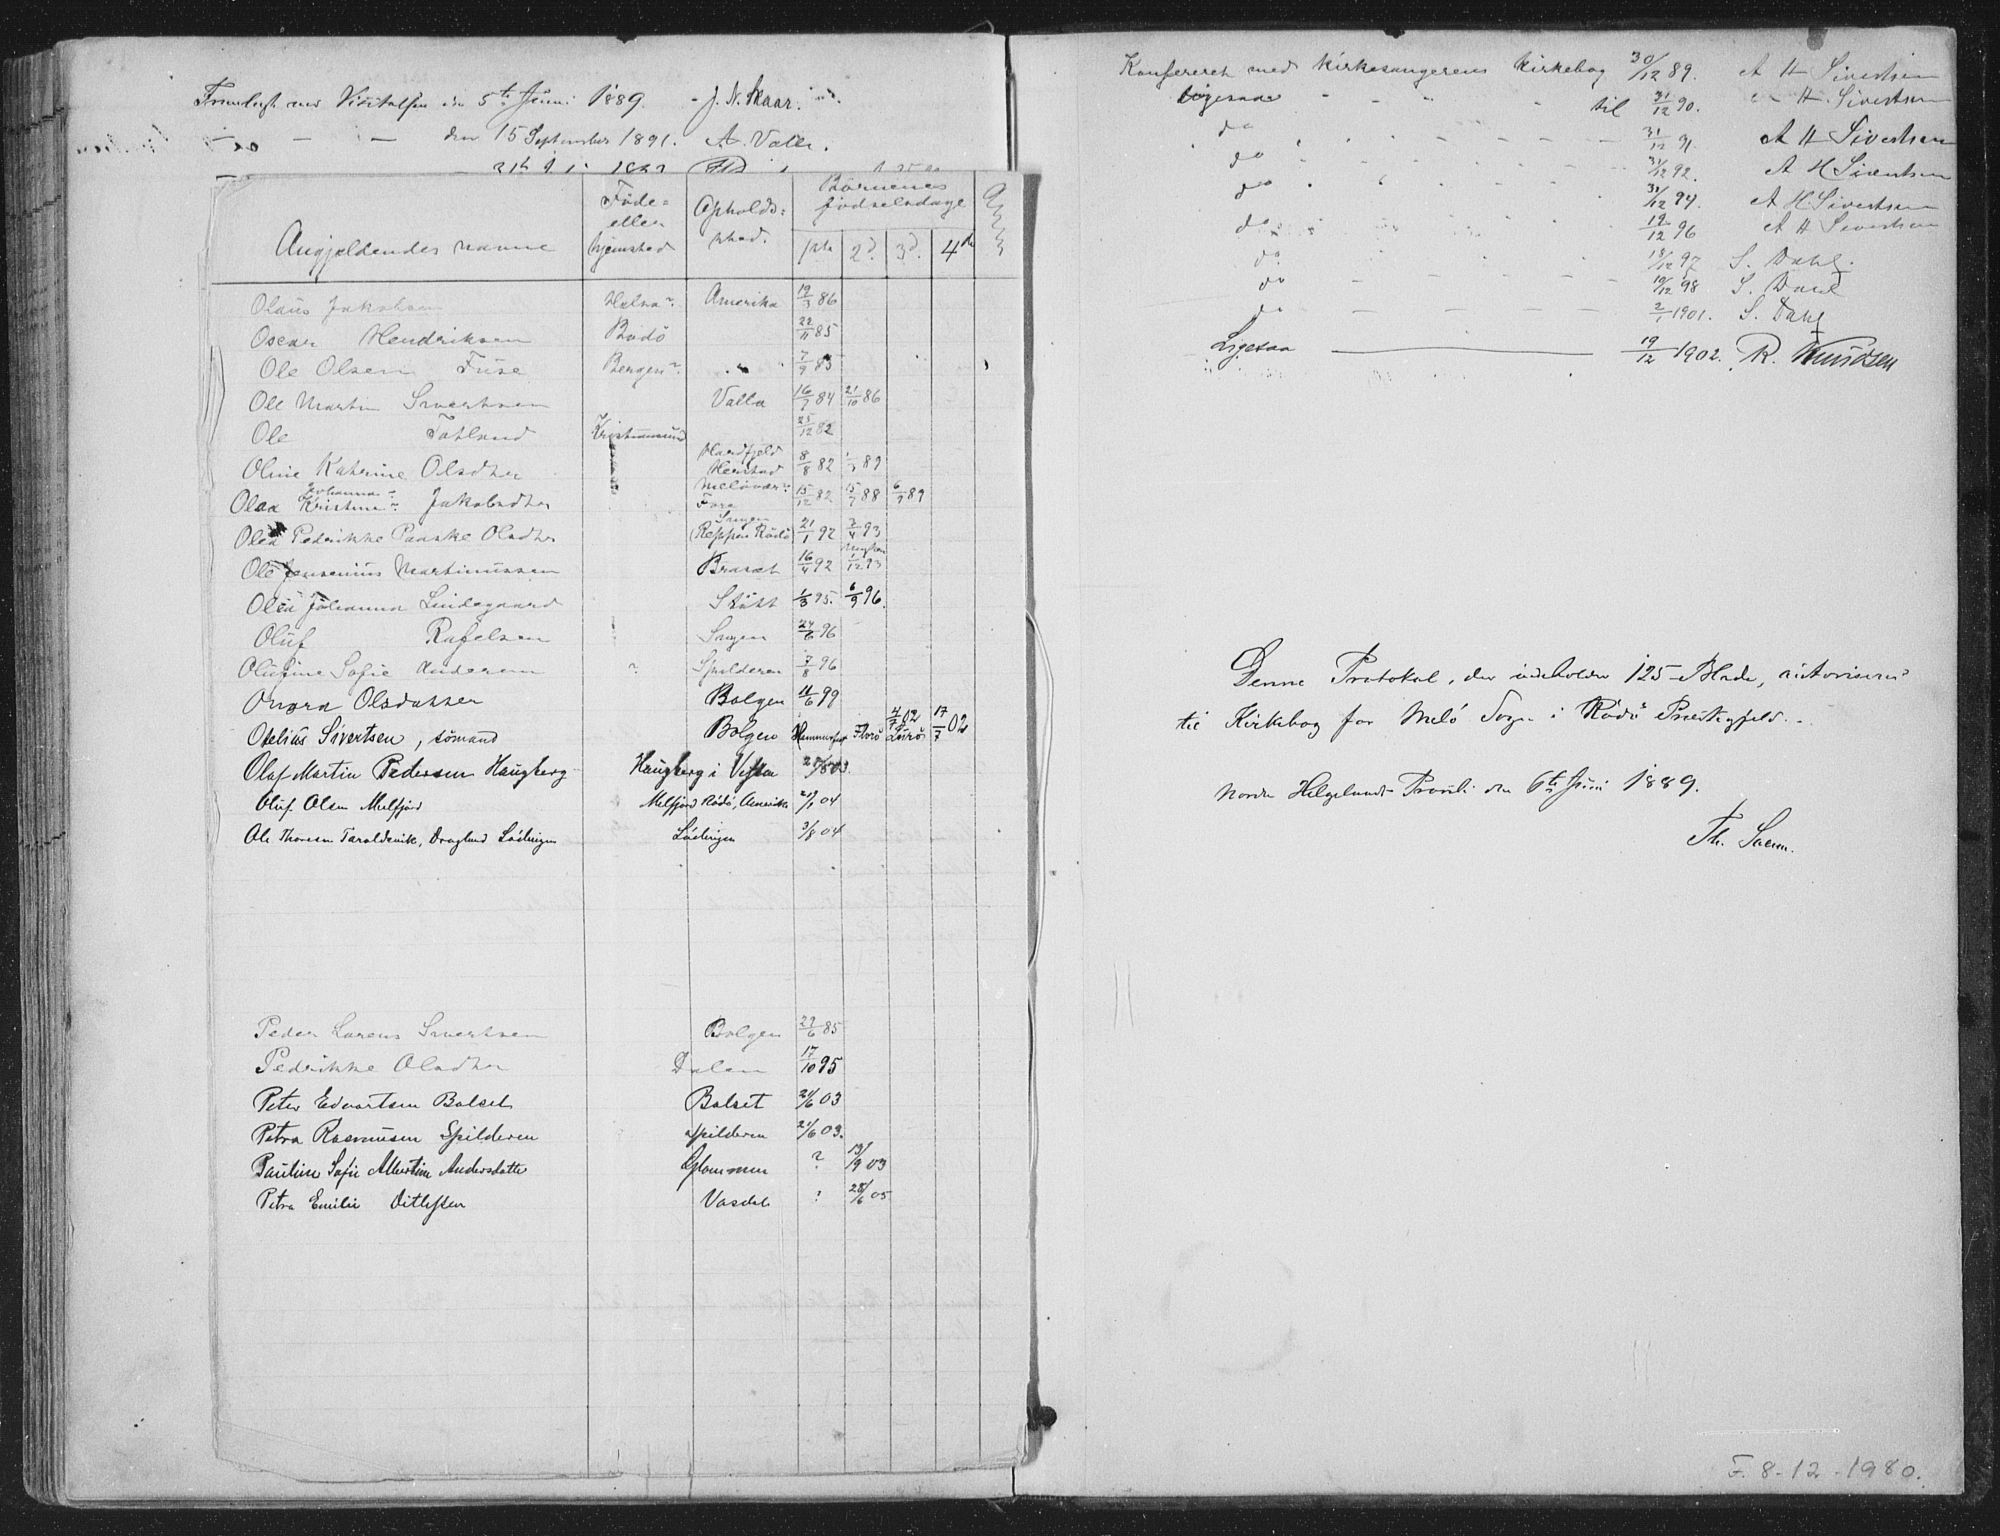 Fremlagt ved Visitatsen den 5te Juni 1889. J. N. Skaar.
— — — den 15 September 1891. A. Valle.
Angjældendes navne
Føde- eller hjemsted
Opholds-sted.
Børnenes fødselsdage
1ste 2d. 3d. 4de
Olaus Jakobsen Amerika 19/3 86
Oscar Hendriksen Bodö 22/11 85
Ole Olsen Fuse Bergen 7/9 83
Ole Martin Sivertsen Valla 16/7 84 21/10 86
Ole Kristiansund 25/12 82
Oline Katrine Olsdtr 8/8 82 89
Olea Johanna Kristine Jakobsdtr Forø 15/12 82 15/7 88 6/9 89
Olea Pedrikke Paaske Olsdtr Reppen Rödö 21/1 92 2/4 93
Ole Jensenius Martinussen Braset 16/4 92 1/12 93
Olea Johanna Lindegaard Stött 1/3 95. 6/9 96.
Oluf Rafelsen 24/6 96
Olufine Sofie Andersen ? Spilderen 7/8 96
Olsdatter Bolgen 11/6 99
Otelius Sivertsen, sömand Bolgen Hammerfest Florö 4/7 02 Lurö 17/7 02
Olaf Martin Pedersen Haugberg Haugberg i Vefsn 03
Oluf Olsen Melfjord Melfjord Rödö, Amerika 04
Ole Thoresen Taraldsvik, Dragland Lödingen Lödingen 3/8 04
Peder Lorens Sivertsen Bolgen 29/6 85
Pedrikke Olsdtr Dalen 17/10 95
Peter Edvartsen Bolset Bolset 21/6 03
Petra Rasmusen Spilderen Spilderen 21/6 03.
Pauline Sofie Albertine Andersdatter Glommen ? 13/9 03
Petra Emilie Ditlefsen Vasdal ? 28/6 05
Konfereret med Kirkesangerens Kirkebog 30/12 89. A H Sivertsen
Ligesaa til 31/12 90. A H. Sivertsen
do 31/12 91 A H Sivertsen
do 31/12 92. A H Sivertsen
do 31/12 94. A H Sivertsen
do 19/12 96 A H Sivertsen
do 18/12 97 S. Dahl.
do 19/12 98 S. Dahl
do 2/1 1901. S. Dahl
Ligesaa 19/12 1902. R. Knudsen
Denne Protokol, der indeholder 125 Blade, autoriseres
til Kirkebog for Melö Sogn i Rödö Præstegjeld.
Nordre Helgelands Provsti den 6te Juni 1889.
Th.
F. 8-12-1980.